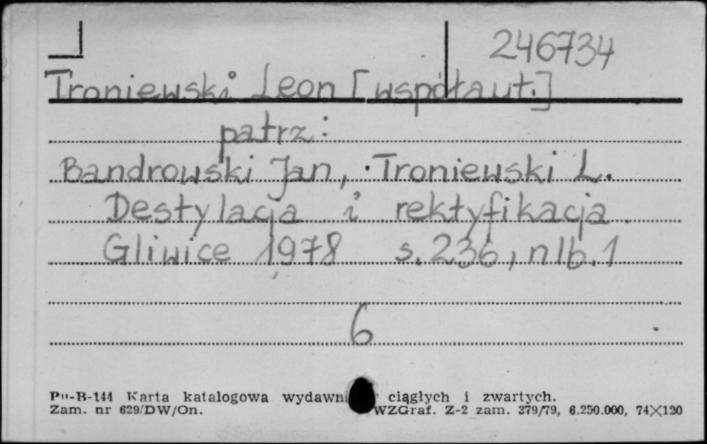 246734
Troniewski Leon [współaut.]
patrz:
Bandrowski Jan, Troniewski L.
Destylacja i rektyfikacja
Gliwice 1978 s. 236, nlb. 1
6
Pu-B-144 Karta katalogowa wydawni ciągłych i zwartych.
Zam. nr 629/DW/On. WZGraf. Z-2 zam. 379/79, 6.250.000, 74×120